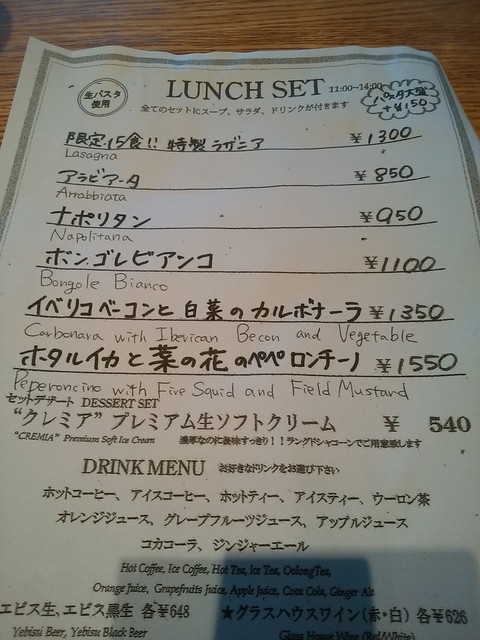 生パスタ
使用
LUNCH SET 11:00~14:00
パスタ大盛
+¥150
全てのセットにスープ、サラダ、ドリンクが付きます
限定15食!! 特製ラザニア ¥1300
Lasagna
アラビアータ ¥850
Arrabbiata
ナポリタン ¥950
Napolitana
ボンゴレビアンコ ¥1100
Bongole Bianco
イベリコベーコンと白菜のカルボナーラ ¥1350
Carbonara with Iberican Becon and Vegetable
ホタルイカと菜の花のペペロンチーノ ¥1550
Peperoncino with Five Squid and Field Mustard
セットデザート DESSERT SET
"クレミア" プレミアム生ソフトクリーム ¥ 540
"CREMIA" Premium Soft Ice Cream 濃厚なのに後味すっきり!!ラングドシャコーンでご用意致します
DRINK MENU お好きなドリンクをお選び下さい
ホットコーヒー、アイスコーヒー、ホットティー、アイスティー、ウーロン茶
オレンジジュース、グレープフルーツジュース、アップルジュース
コカコーラ、ジンジャーエール
Hot Coffee, Ice Coffee, Hot Tea, Ice Tea, OolongTea,
Orange Juice, Grapefruits Juice, Apple Juice, Coca Cola, Ginger Ale
エビス生、エビス黒生 各¥648 ★グラスハウスワイン(赤・白) 各¥626
Yebisu Beer, Yebisu Black Beer Glass House Wine (Red/White)